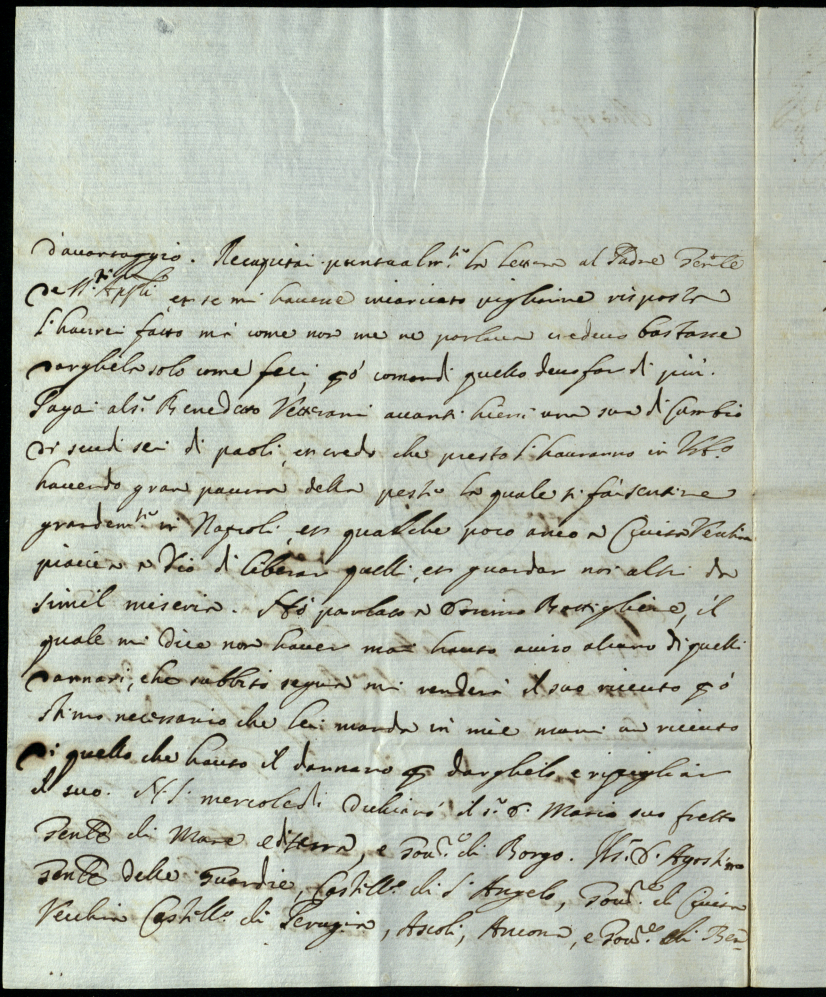 d'avantaggio. Recapitai puntualm.te la lettera al Padre Gen.le
de SS.ti Appli, et se mi havesse incaricato pigliarne risposta
l'haurei fatto mà come non me ne parlava credevo bastasse
darghela solo come feci, però comandi quello devo far di più.
Pagai al S.r Benedetto Vetterani avanti hieri una sua di Cambio
di scudi sei di paoli, et credo che presto l'hauranno in Urb.o
havendo gran paura della peste la quale si fà sentire
grandem.te in Napoli, et qualche poco anco a Civita Vecchia
piaccia a Dio di liberar quelli, et guardar noi altri da
simil miseria. Hò parlato a Bottigliere, il
quale mi dice non haver mai hauto aviso alcuno di quelli
dannari, che subbito segua mi renderà il suo riceuto però
stimo necessario che lei manda in mie mani un riceuto
di quello che hauto il dannaro per darghelo, e ripigliar
il suo. N. S. mercoledì dichiarò il S.r D. Mario suo fr̃ello
Gen̄le di Mare e di terra, e Gov.re di Borgo. Il S.r D. Agostino
Gen̄le delle Guardie, Castell.o di S. Angelo, Gov.re di Civita
Vecchia Castell.o di Perugia, Ascoli, Ancona, e Gov.re di Ben-